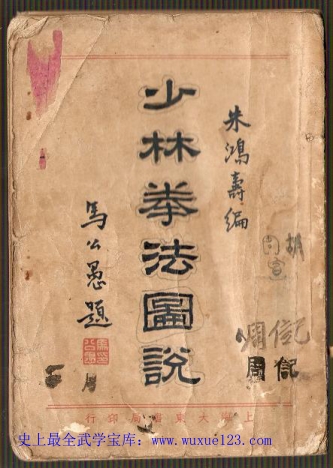 朱鴻壽編
少林拳法圖說
馬公愚題
上海大東書局印行
史上最全武学宝库--www.wuxue123.com